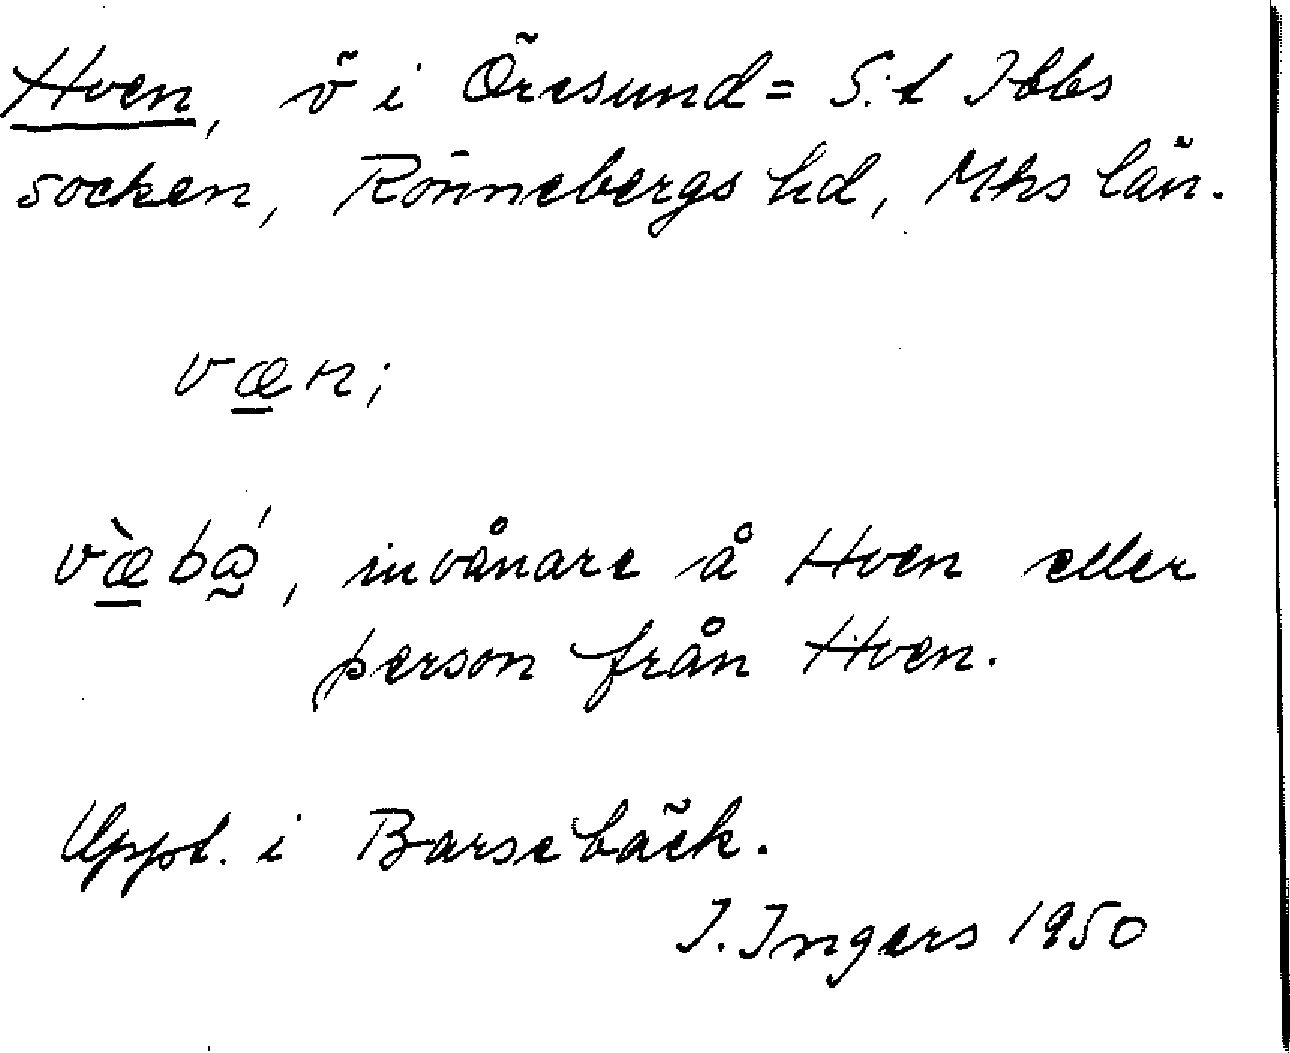 Hven, ö i Öresund = S:t Ibbs
socken, Rönnebergs hd, Mhs län.
væn;
væ̀bó, invånare å Hven eller
person från Hven.
Uppt. i Barsebäck.
I. Ingers 1950